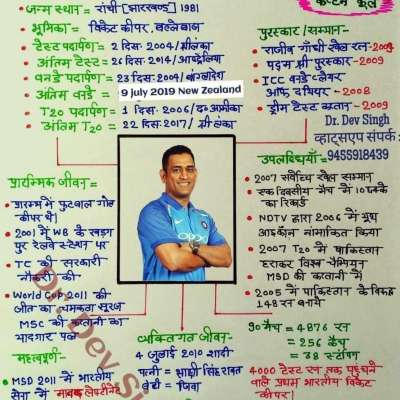 कैप्टन कूल
• जन्म स्थान = रांची [झारखण्ड] 1981
• भूमिका = विकेट कीपर, बल्लेबाज
• टेस्ट पदार्पण = 2 दिस॰ 2004/श्रीलंका
अंतिम टेस्ट = 26 दिस॰ 2014/आस्ट्रेलिया
• वनडे पदार्पण = 23 दिस॰ 2004/बांग्लादेश
अंतिम वनडे = 9 july 2019 New Zealand
• T20 पदार्पण = 1 दिस॰ 2006/द॰ अफ्रीका
अंतिम T20 = 22 दिस॰ 2017/श्रीलंका
पुरस्कार/सम्मान-
• राजीव गाँधी खेल रत्न-2007
• पद्म श्री पुरस्कार-2009
• ICC वनडे प्लेयर
ऑफ द ईयर - 2008
• ड्रीम टेस्ट कप्तान - 2009
Dr. Dev Singh
व्हाट्सएप संपर्क :
9455918439
प्रारम्भिक जीवन =
• प्रारम्भ में फुटबाल गोल
कीपर थे।
• 2001 में WB के खड़गपुर
रेलवे स्टेशन पर
• TC की सरकारी
नौकरी की
• World Cup 2011 की
जीत का चमकता सूरज
MSD की कप्तानी का
यादगार पल
महत्वपूर्ण-
• MSD 2011 में भारतीय
सेना में मानद लेफ्टिनेंट
OPPO
व्यक्तिगत जीवन-
4 जुलाई 2010 शादी
पत्नी = साक्षी सिंह रावत
बेटी = जिवा
उपलब्धियाँ-
• 2007 सर्वोच्च खेल सम्मान
• एक दिवसीय मैच में 10 छक्के
का रिकॉर्ड
• NDTV द्वारा 2006 में यूथ
आइकॉन नामांकित किया
• 2007 T20 में पाकिस्तान
हराकर विश्व चैम्पियन
• MSD की कप्तानी में
• 2005 में पाकिस्तान के विरुद्ध
148 रन बनाये
90 मैच = 4876 रन
= 256 कैच
= 38 स्टंपिंग
4000 टेस्ट रन तक पहुंचने
वाले प्रथम भारतीय विकेट
कीपर।
Dr. Dev Si